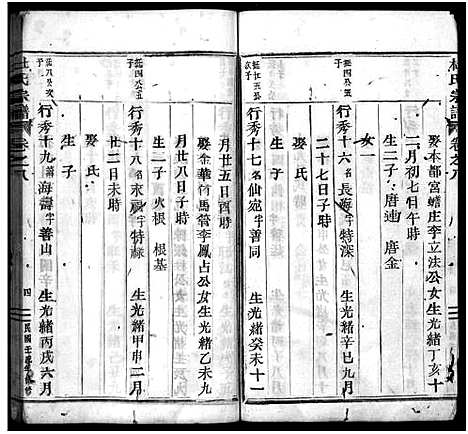 杜氏宗譜 卷之八
娶本都宮蟾庄李立法公女生光緒丁亥十
二月初七日午時
生二子 唐迪 唐金
女一
廷四公五子
行秀十六 名長海字特深 生光緒辛巳九月
二十七日子時
廷廿五公次子
行秀十七 名仙宛字善同 生光緒癸未十一
月廿五日酉時
娶金華府馬管李鳳占公女生光緒乙未九
月廿八日子時
生二子 火根 根基
廷四公
行秀十八 名永福字特綠 生光緒甲申二月
廿二日未時
娶氏
生子
廷八公次子
行秀十九 海壽字善山 生光緒丙戌六月
杜氏宗譜 卷之八 四 民國壬